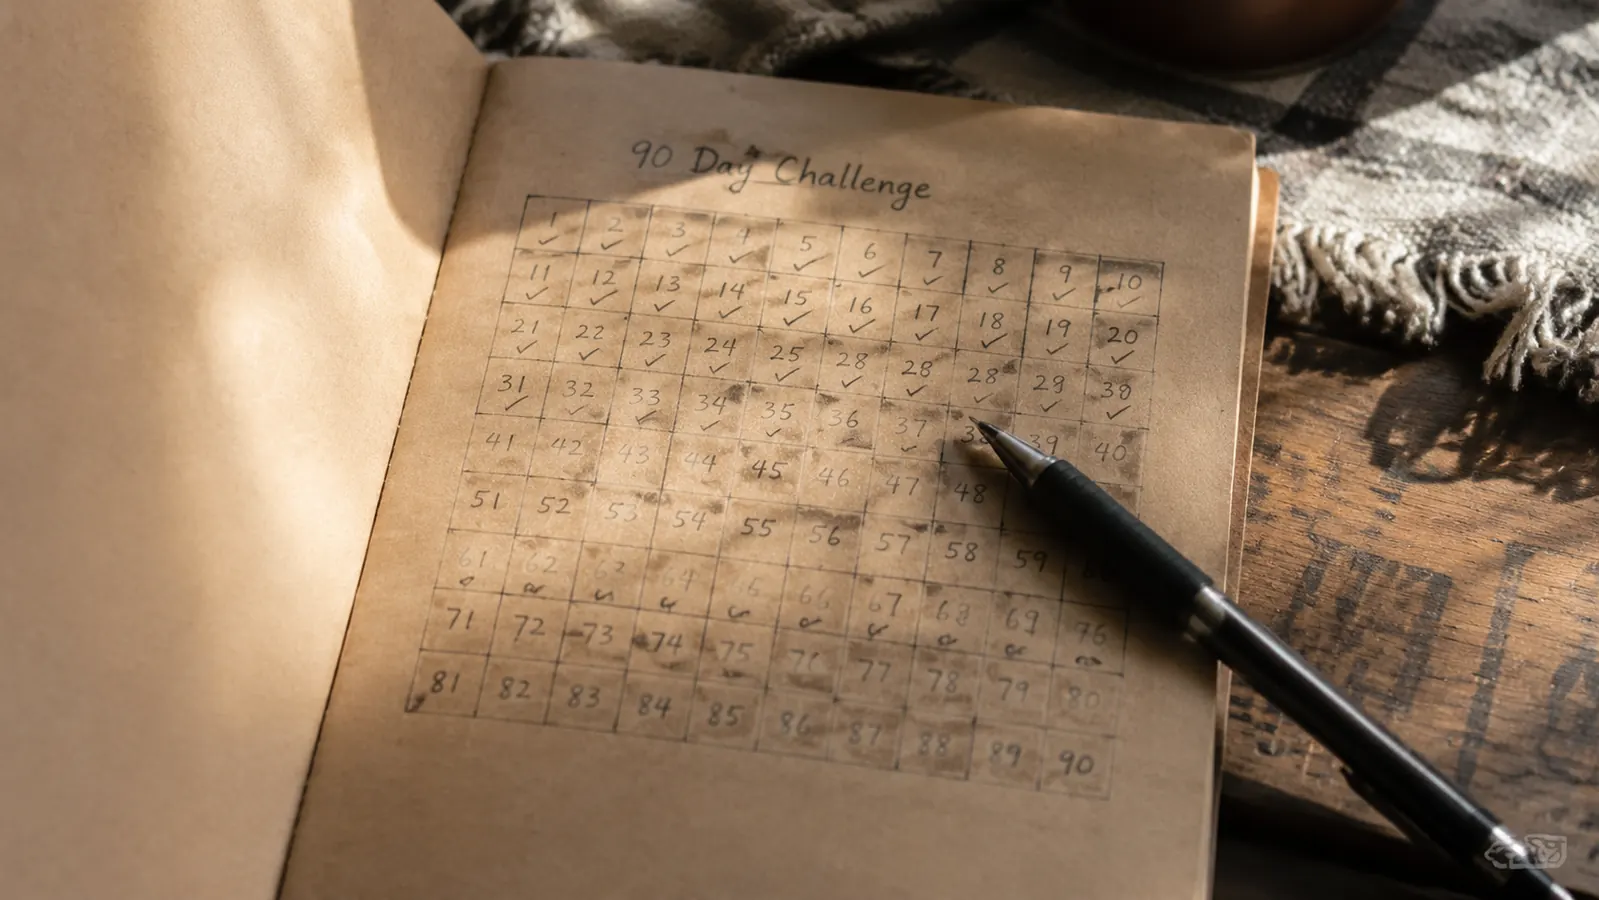 90 Day Challenge
1 2 3 4 5 6 7 8 9 10
11 12 13 14 15 16 17 18 19 20
21 22 23 24 25 28 28 28 29 30
31 32 33 34 35 36 37 39 40
41 42 43 44 45 46 47 48
51 52 53 54 55 56 57 58 59
61 62 63 64 65 66 67 68 69 76
71 72 73 74 75 77 78 79 80
81 82 83 84 85 86 87 88 89 90